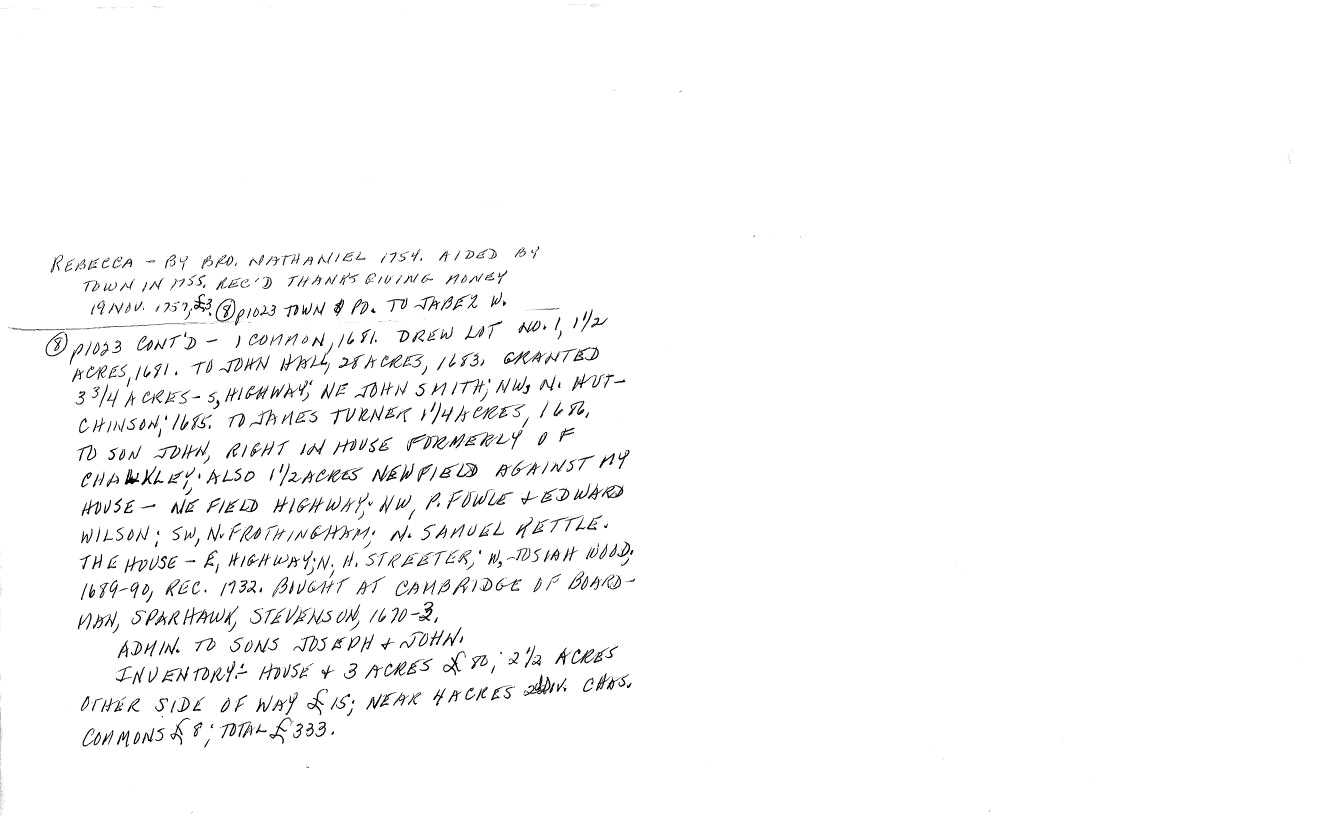 REBECCA - BY BRO. NATHANIEL 1754. AIDED BY
TOWN IN 1755. REC'D THANKSGIVING MONEY
19 NOV. 1757, £3. ⑧ p1023 TOWN $ PD. TO JABEZ W.
⑧ p1023 CONT'D - 1 COMMON, 1681. DREW LOT NO. 1, 1 1/2
ACRES, 1681. TO JOHN HALL, 28 ACRES, 1683. GRANTED
3 3/4 ACRES - S, HIGHWAY; NE JOHN SMITH; NW, N. HUT-
CHINSON; 1685. TO JAMES TURNER 1 1/4 ACRES, 1686.
TO SON JOHN, RIGHT IN HOUSE FORMERLY OF
CHAWKLEY; ALSO 1 1/2 ACRES NEWFIELD AGAINST MY
HOUSE - NE FIELD HIGHWAY; NW, P. FOWLE & EDWARD
WILSON; SW, N. FROTHINGHAM; N. SAMUEL KETTLE.
THE HOUSE - E, HIGHWAY; N, H. STREETER; W, JOSIAH WOOD;
1689-90, REC. 1732. BOUGHT AT CAMBRIDGE OF BOARD-
MAN, SPARHAWK, STEVENSON, 1670-3.
ADMIN. TO SONS JOSEPH & JOHN.
INVENTORY:- HOUSE & 3 ACRES £80; 2 1/2 ACRES
OTHER SIDE OF WAY £15; NEAR 4 ACRES 2d DIV. CHAS.
COMMONS £8; TOTAL £333.